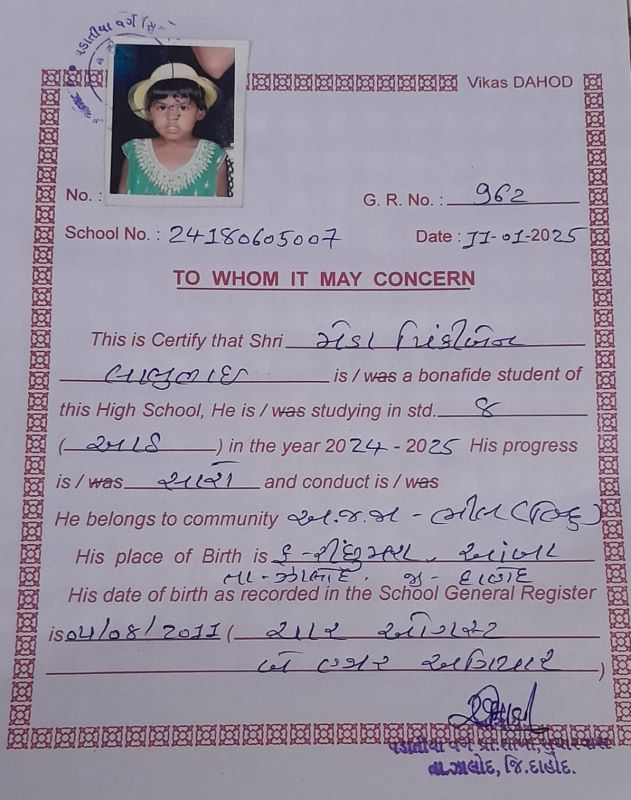 પડાતીયા વર્ગ
Vikas DAHOD
No. :
G. R. No. : 962
School No. : 24180605007
Date : 11-01-2025
TO WHOM IT MAY CONCERN
This is Certify that Shri મેડા
બાબુભાઇ is / was a bonafide student of
this High School, He is / was studying in std. 8
(આઠ) in the year 2024 - 2025 His progress
is / was સારો and conduct is / was
He belongs to community અ.જ.જા - ભીલ (હિન્દુ)
His place of Birth is આંબા
તા - ઝાલોદ. જી - દાહોદ
His date of birth as recorded in the School General Register
is 04/08/2011 (ચાર ઓગસ્ટ
બે હજાર અગિયાર)
પડાતીયા વર્ગ પ્રા.શાળા,
તા.ઝાલોદ, જિ.દાહોદ.